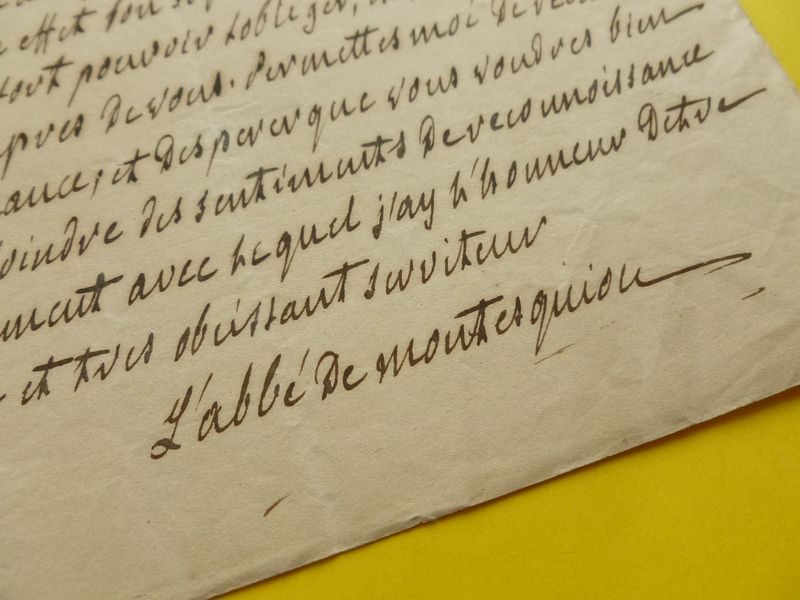 effet
tort pouvoir lobliger,
pres de vous. Permettes moi de
ance; et desperer que vous voudres bien
joindre des sentiments de reconnoissance
ment avec lequel j'ay l'honneur Detre
et tres obeissant serviteur
L'abbé de montesquiou